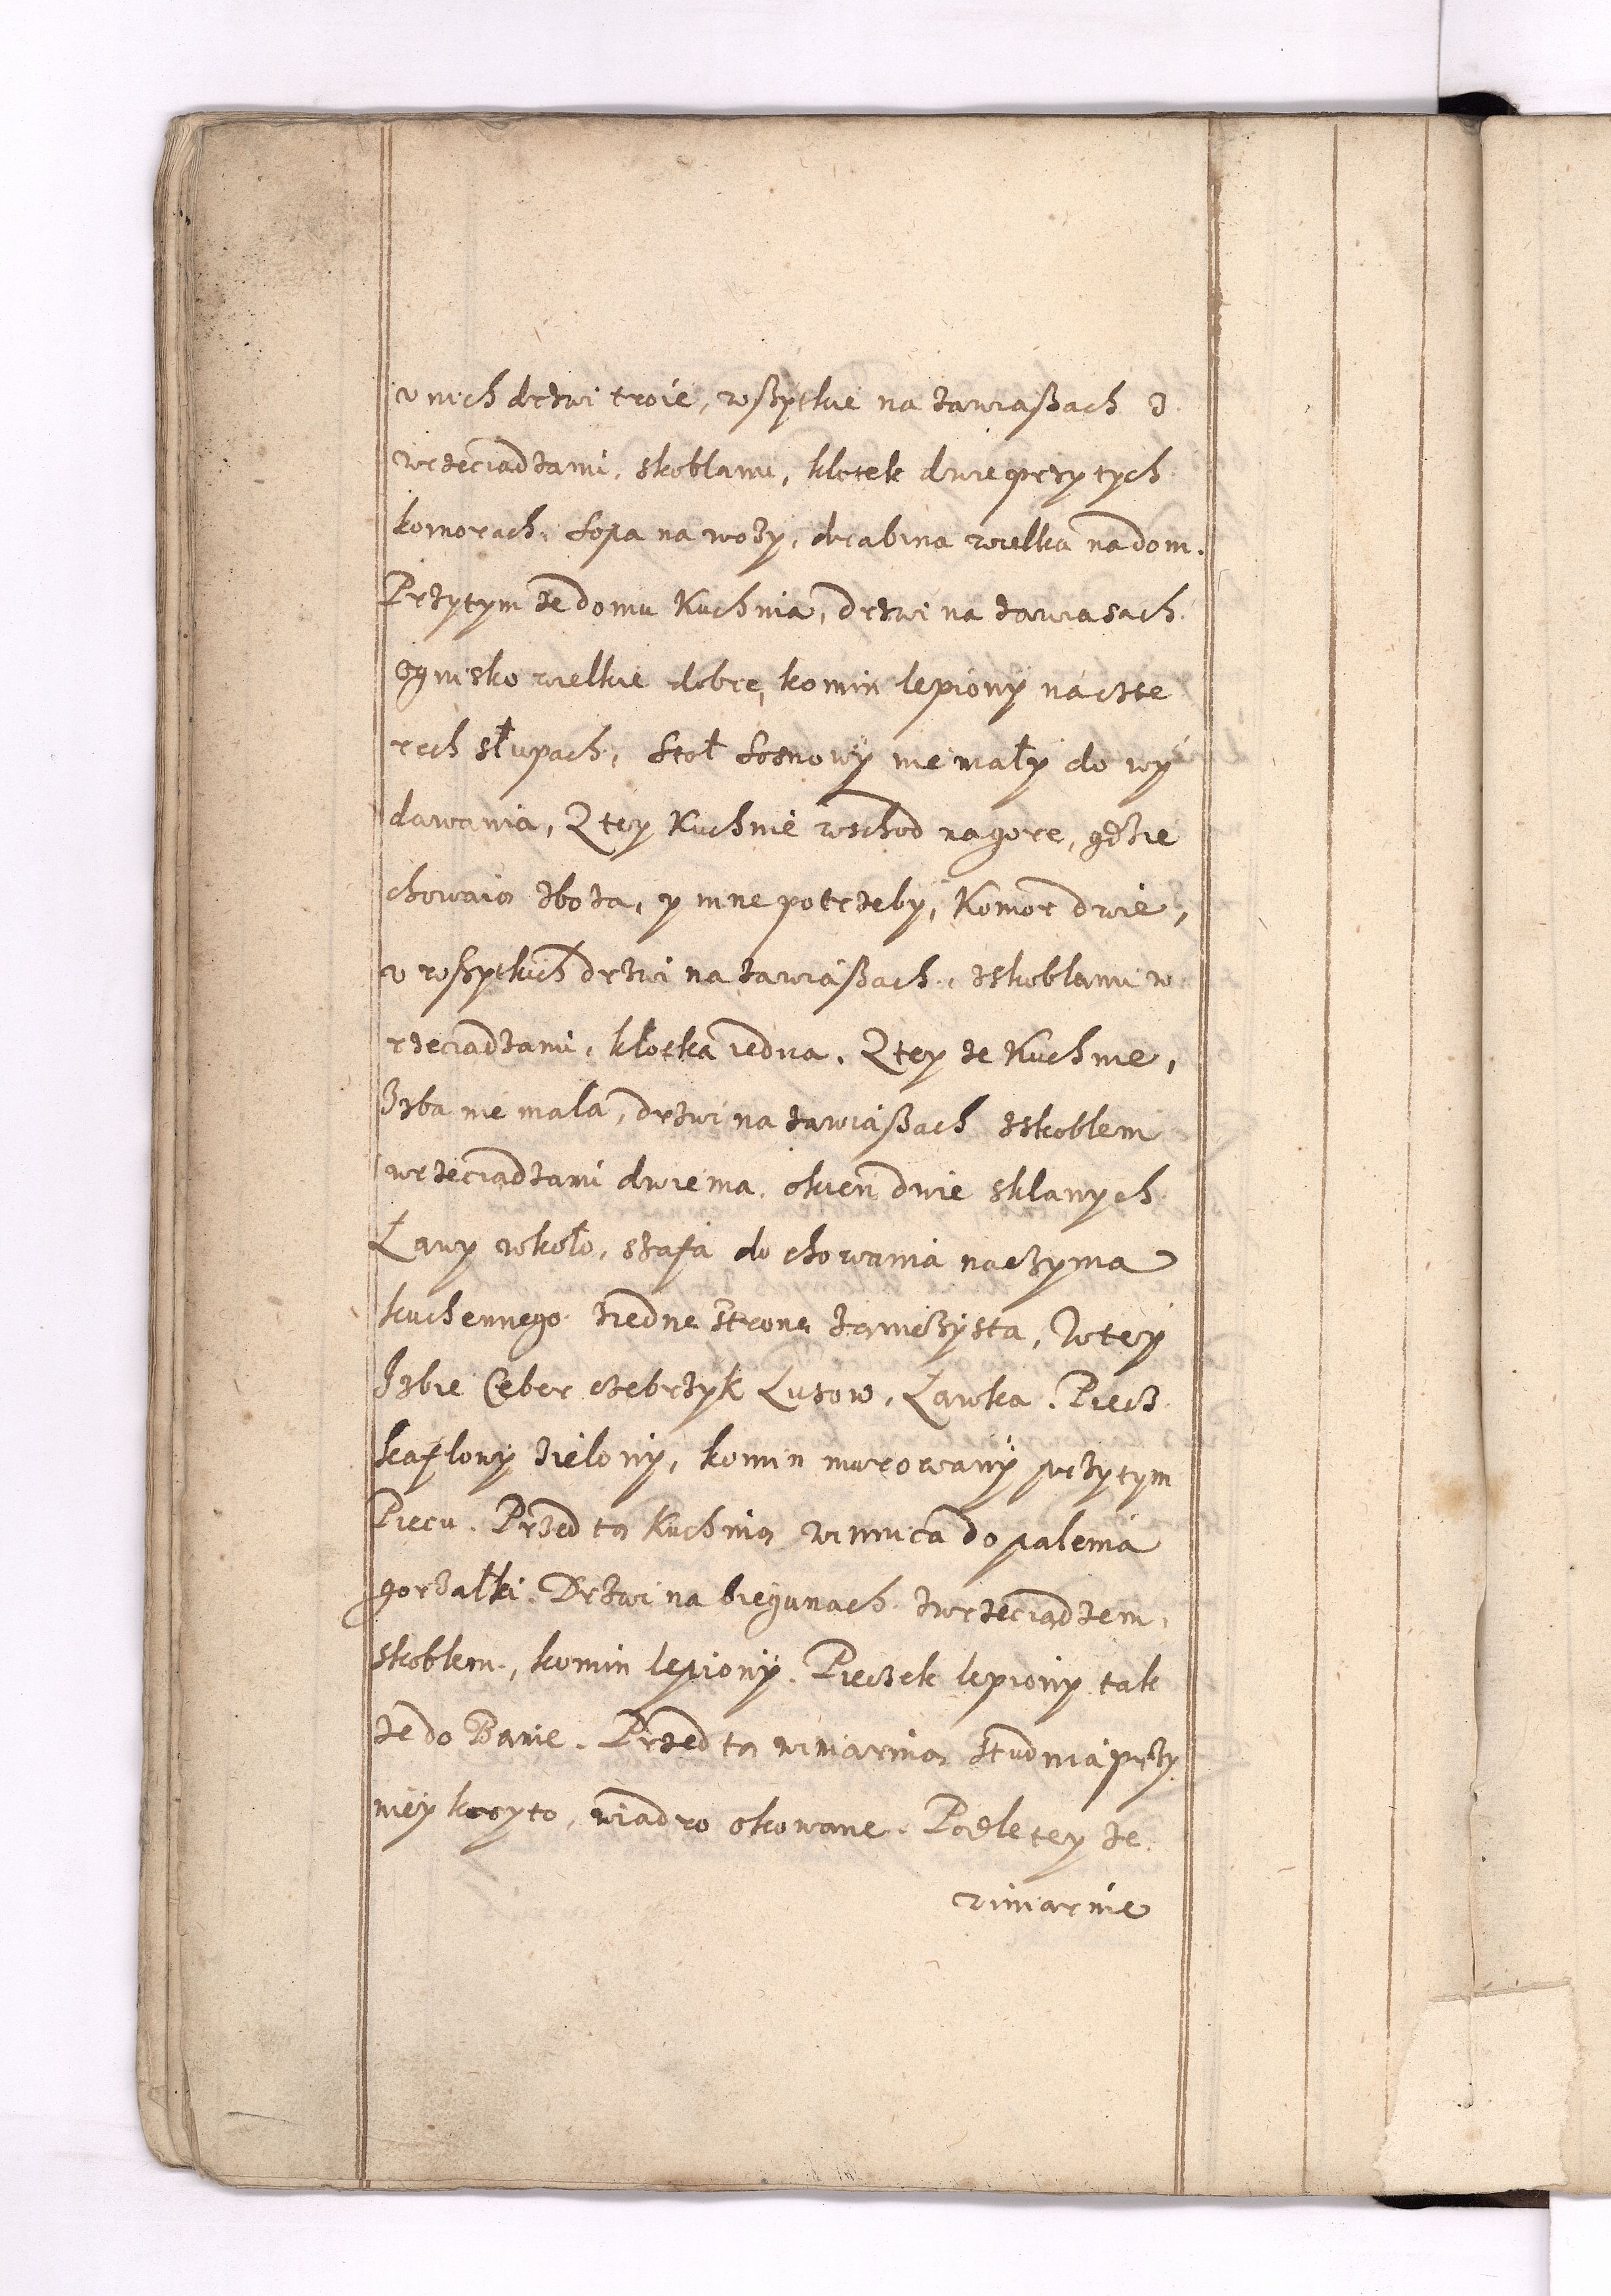 v nich drzwi troie, wßytkie na zawiaßach z
wrzeciadzami, skoblami, klotek dwie przy tych
komorach. Sopa na wozy, drabina wielka na dom.
Przytym ze domu Kuchnia, drzwi na zawiasach
Ognisko wielkie dobre, komin lepiony na czte
rech słupach, Stoł Sosnowy nie mały do wy
dawania, Z tey Kuchnie wschod na gore, gdzie
chowaią zboza, y inne potrzeby, Komor dwie,
v wßytkich drzwi na zawiaßach, z skoblami w
rzeciadzami, kłotka iedna. Z tey ze Kuchnie,
Izba nie mala, drzwi na zawiaßach z skoblem
wrzeciadzami dwiema. okien dwie sklanych
Ławy wkoło, szafa do chowania naczynia
kuchennego z iedne strone zamczysta, W tey
Izbie Ceber czebrzyk Lusow, Ławka. Piecz
kaflony zielony, komin murowany przytym
Piecu. Przed tą Kuchnią winnica do palenia
gorzałki. Drzwi na biegunach z wrzeciadzem,
skoblem, komin lepiony. Pieczek lepiony tak
ze do Banie. Przed tą winiarnią studnia przy
niey koryto, wiadro okowane. Podle tey ze
winiarnie